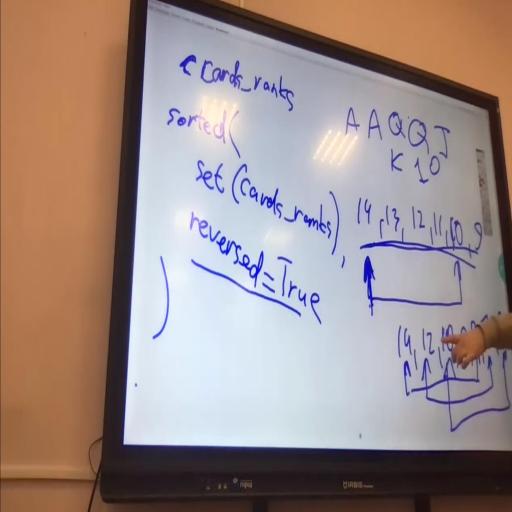 cards_ranks
sorted(
set(cards_ranks),
reversed=True
)
A A Q Q J
K 10
14, 13, 12, 11, 10, 9
14, 12, 10
IRBIS